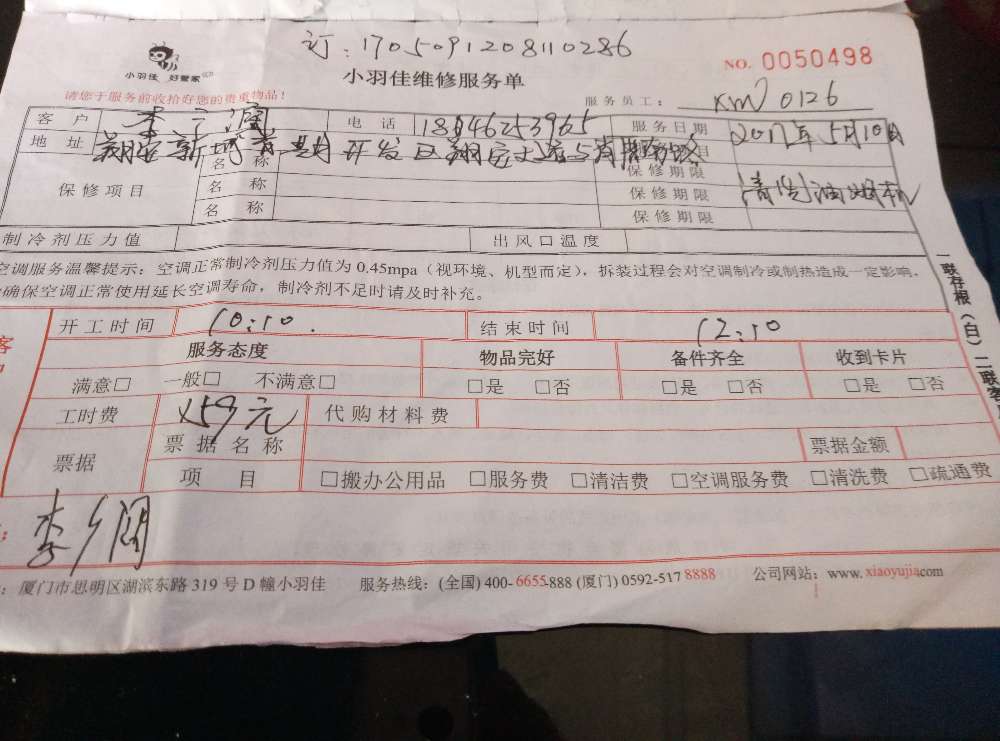 订：1705091208110286
小羽佳 好管家
NO. 0050498
小羽佳维修服务单
请您于服务前收拾好您的贵重物品！
服务员工： XM 0126
客户 李 电话 18046253965 服务日期 2017年5月10日
地址 翔安新 开发区翔安大道与
保修项目 名称 保修期限
名称 保修期限 清洗油烟机
名称 保修期限
制冷剂压力值 出风口温度
空调服务温馨提示：空调正常制冷剂压力值为0.45mpa（视环境、机型而定），拆装过程会对空调制冷或制热造成一定影响，
确保空调正常使用延长空调寿命，制冷剂不足时请及时补充。
开工时间 10:10. 结束时间 12:10
服务态度 物品完好 备件齐全 收到卡片
满意□ 一般□ 不满意□ □是 □否 □是 □否 □是 □否
工时费 ¥59元 代购材料费
票据 票据名称 票据金额
项目 □搬办公用品 □服务费 □清洁费 □空调服务费 □清洗费 □疏通费
李
：厦门市思明区湖滨东路319号D幢小羽佳 服务热线：(全国) 400-6655-888 (厦门) 0592-517 8888 公司网站：www.xiaoyujia.com
一联存根（白）二联客